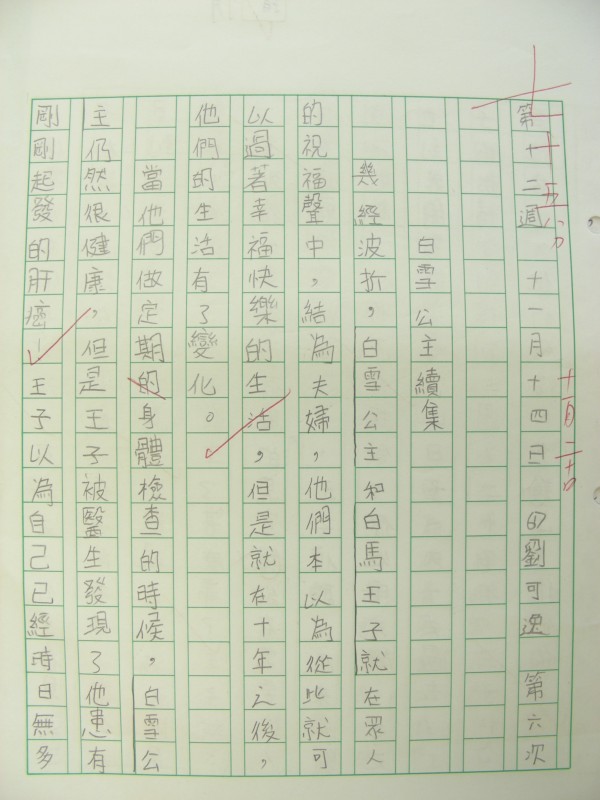 第十二週 十一月十四日 ㊼劉可逸 第六次
白雪公主續集
幾經波折，白雪公主和白馬王子就在眾人
的祝福聲中，結為夫婦，他們本以為從此就可
以過著幸福快樂的生活，但是就在十年之後，
他們的生活有了變化。
當他們做定期的身體檢查的時候，白雪公
主仍然很健康，但是王子被醫生發現了他患有
剛剛起發的肝癌！王子以為自己已經時日無多